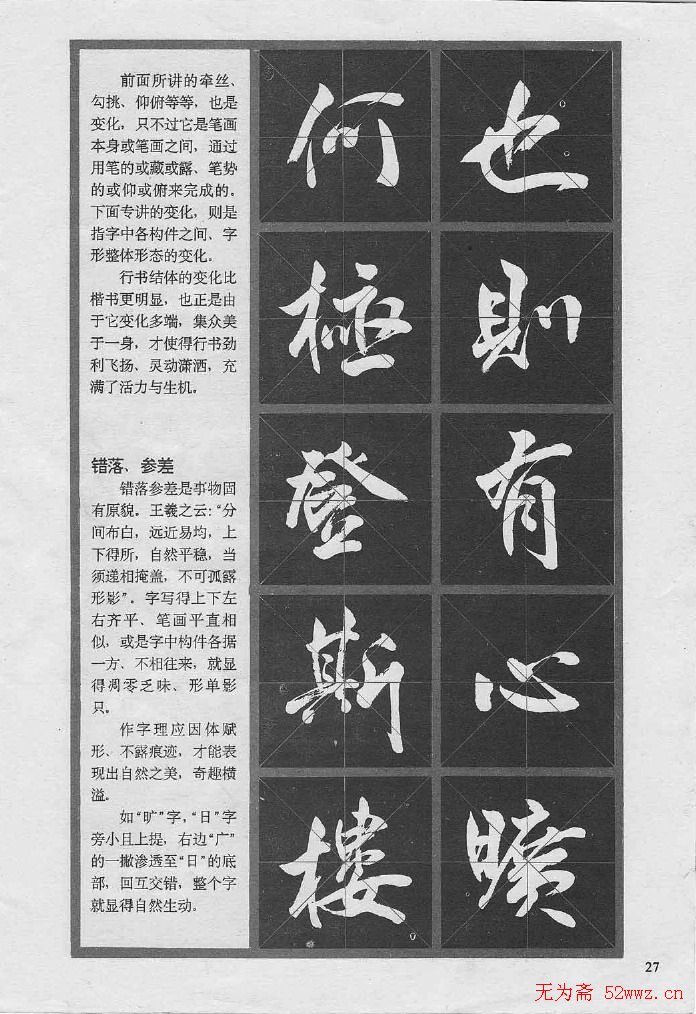 前面所讲的牵丝、
勾挑、仰俯等等，也是
变化，只不过它是笔画
本身或笔画之间，通过
用笔的或藏或露、笔势
的或仰或俯来完成的。
下面专讲的变化，则是
指字中各构件之间、字
形整体形态的变化。
行书结体的变化比
楷书更明显，也正是由
于它变化多端，集众美
于一身，才使得行书劲
利飞扬、灵动潇洒，充
满了活力与生机。
错落、参差
错落参差是事物固
有原貌。王羲之云：“分
间布白，远近易均，上
下得所，自然平稳，当
须递相掩盖，不可孤露
形影”。字写得上下左
右齐平、笔画平直相
似，或是字中构件各据
一方、不相往来，就显
得凋零乏味、形单影
只。
作字理应因体赋
形、不露痕迹，才能表
现出自然之美，奇趣横
溢。
如“旷”字，“日”字
旁小且上提，右边“广”
的一撇渗透至“日”的底
部，回互交错，整个字
就显得自然生动。
也則有心曠
何極登斯樓
27
无为斋 52wwz.cn